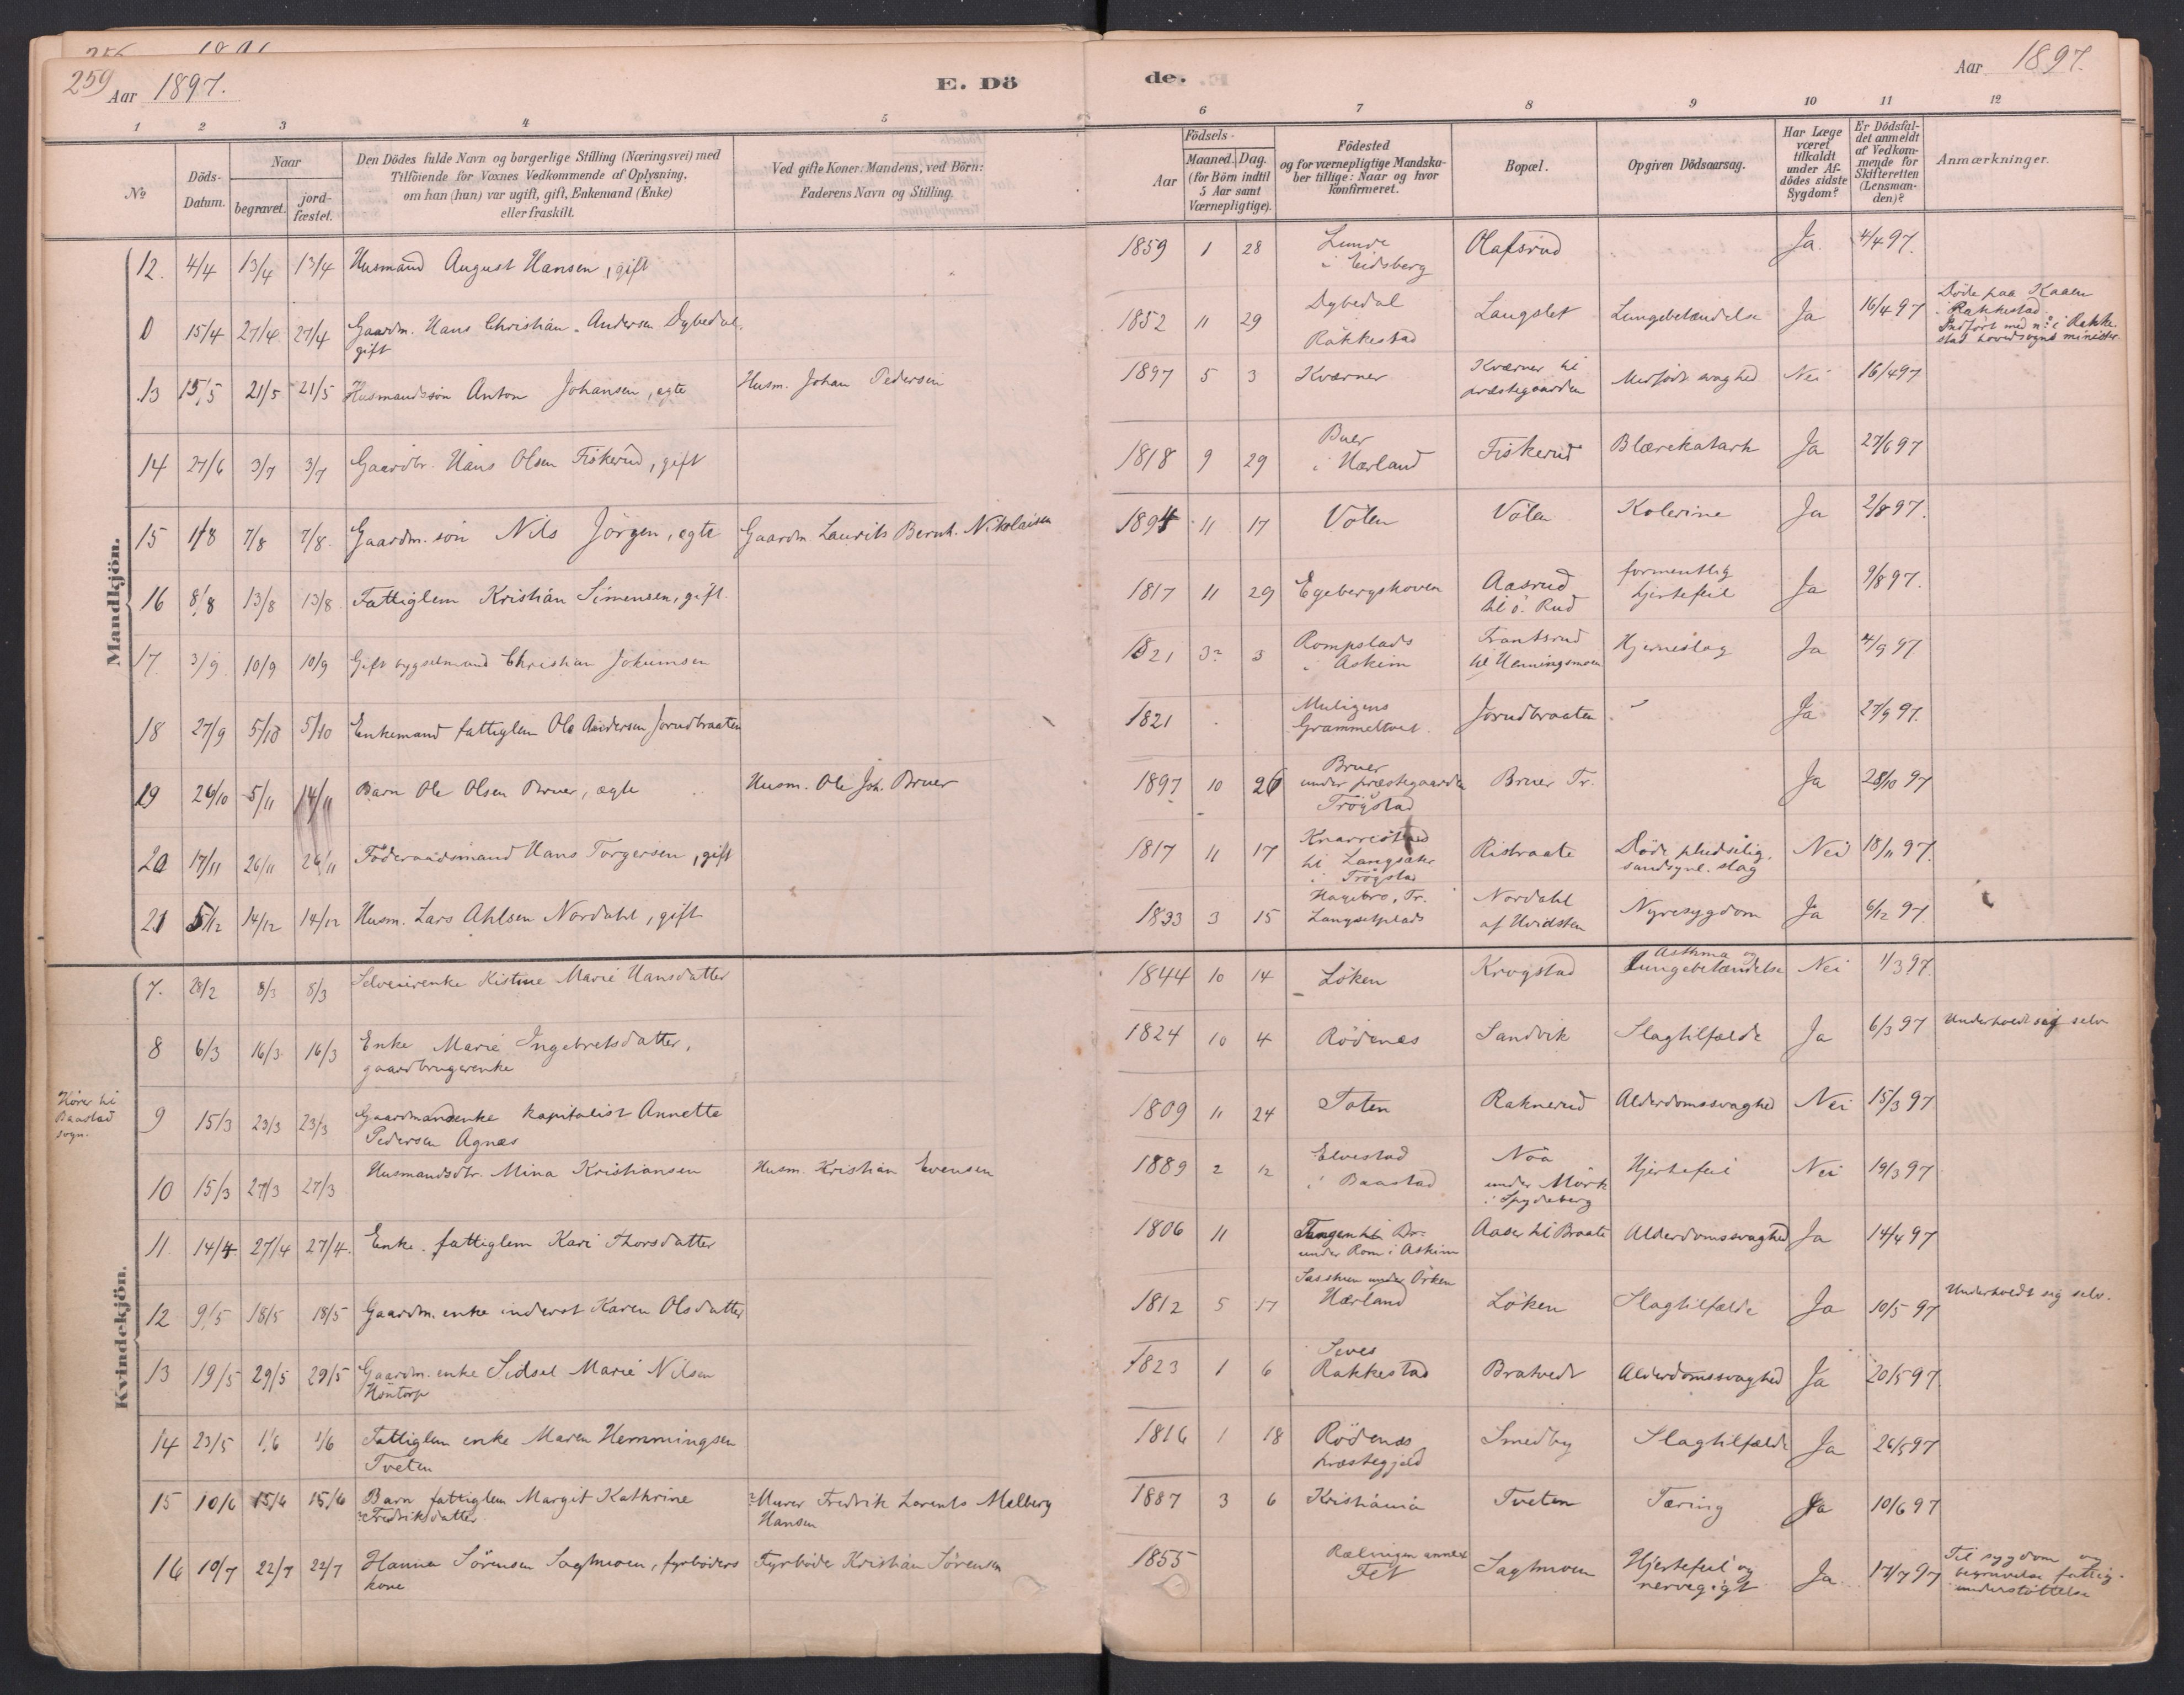 259 Aar 1897. E. Dö de. Aar 1897.
1 2 3 4 5 6 7 8 9 10 11 12
No
Döds-Datum.
Naar
begravet.
jord-fæstet.
Den Dödes fulde Navn og borgerlige Stilling (Næringsvei) med
Tilföiende for Voxnes Vedkommende af Oplysning,
om han (hun) var ugift, gift, Enkemand (Enke)
eller fraskilt.
Ved gifte Koner: Mandens, ved Börn:
Faderens Navn og Stilling.
Födsels-
Aar
Maaned. Dag.
(for Börn indtil
5 Aar samt
Værnepligtige).
Födested
og for værnepligtige Mandska-
ber tillige: Naar og hvor
konfirmeret.
Bopæl.
Opgiven Dödsaarsag.
Har Læge
været
tilkaldt
under Af-
dödes sidste
Sygdom?
Er Dödsfal-
det anmeldt
af Vedkom-
mende for
Skifteretten
(Lensman-
den)?
Anmærkninger.
Mandkjön.
12. 4/4 13/4 13/4 Husmand August Hansen, gift 1859 1 28 Lunde i Eidsberg Olafsrud Ja 4/4 97.
0 15/4 27/4 27/4 Gaardm. Hans Christian Andersen Dybedal, gift 1852 11 29 Dybedal Rakkestad Langslet Lungebetændelse Ja 16/4 97 Döde paa Kaaen i Rakkestad. Indfört med n: i Rakkestad hovedsogns minister.
13 15/5 21/5 21/5 Husmandssön Anton Johansen, egte Husm. Johan Pedersen 1897 5 3 Kværner Kværner til præstegaarden Medfödt svaghed Nei 16/4 97
14 27/6 3/7 3/7 Gaardbr. Hans Olsen Fiskerud, gift 1818 9 29 Buer i Hærland Fiskerud Blærekatarh Ja 27/6 97
15 1/8 7/8 7/8. Gaardm. sön Nils Jörgen, egte Gaardm. Laurits Bernh. Nikolaisen 1894 11 17 Völen Völen Kolerine Ja 2/8 97.
16 8/8 13/8 13/8 Fattiglem Kristian Simensen, gift. 1817 11 29 Egebergskoven Aasrud til ö. Rud formentlig hjertefeil Ja 9/8 97.
17. 3/9 10/9 10/9 Gift bygselmand Christian Jokumsen 1821 3? 3 Rompslads i Askim Frantsrud til Henningsmoen Hjerneslag Ja 4/9 97
18 27/9 5/10 5/10 Enkemand fattiglem Ole Andersen Jorudbraaten 1821 Muligens Grammeltvet. Jorudbraaten " Ja 27/9 97.
19 26/10 5/11 14/11 Barn Ole Olsen Bruer, egte Husm. Ole Joh. Bruer 1897 10 26 Bruer under præstegaarden Trögstad Bruer Tr. Ja 28/10 97
20 17/11 26/11 26/11 Föderaadsmand Hans Torgersen, gift 1817 11 17 til Langsæter i Trögstad Ristraate Döde pludselig, sandsynl. slag Nei 18/11 97.
21 5/12 14/12 14/12 Husm. Lars Ahlsen Nordahl, gift 1833 3 15 Hagebro, Tr. Langsetplads Nordahl af Hvidsten Nyresygdom Ja 6/12 97.
Kvindekjön.
7. 28/2 8/3 8/3 Selveierenke Kistine Marie Hansdatter 1844 10 14 Löken Krogstad Asthma og Lungebetændelse Nei 1/3 97.
8 6/3 16/3 16/3 Enke Marie Ingebretsdatter, gaardbrugerenke 1824 10 4 Rödenes Sandvik Slagtilfælde Ja 6/3 97 Underholdt sig selv
Hörer til Baastad sogn.
9 15/3 23/3 23/3 Gaardmandsenke kapitalist Annette Pedersen Agnæs 1809 11 24 Toten Raknerud Alderdomssvaghed Nei 15/3 97
10 15/3 27/3 27/3 Husmandsdtr. Mina Kristiansen Husm. Kristian Evensen 1889 2 12 Elvestad i Baastad Nöa under Mörk i Spydeberg Hjertefeil Nei 19/3 97
11. 14/4 27/4 27/4. Enke fattiglem Kari Thorsdatter 1806 11 Tangen til Br. under Rom i Askim Aaser til Braate Alderdomssvaghed Ja 14/4 97
12 9/5 18/5 18/5 Gaardm. enke inderst Karen Olsdatter 1812 5 17 under Örken Hærland Löken Slagtilfælde Ja 10/5 97 Underholdt sig selv.
13 19/5 29/5 29/5 Gaardm. enke Sidsel Marie Nilsen Höntorp 1823 1 6 Rakkestad Bratvedt Alderdomssvaghed Ja 20/5 97.
14 23/5 1/6 1/6 Fattiglem enke Maren Hemmingsen Tveten 1816 1 18 Rödenes præstegjeld Smedby Slagtilfælde Ja 26/5 97
15 10/6 15/6 15/6 Barn fattiglem Margit Kathrine ?Fredriksdatter ?Murer Fredrik Lorents Melberg Hansen 1887 3 6 Kristiania Tveten Tæring Ja 10/6 97
16 10/7 22/7 22/7 Hanna Sörensen Sagmoen, fyrböders kone Fyrböder Kristian Sörensen 1855 Rælingen annex Fet Sagmoen Hjertefeil og nervegigt Ja 17/7 97 Til sygdom og begravelse fattigunderstöttelse